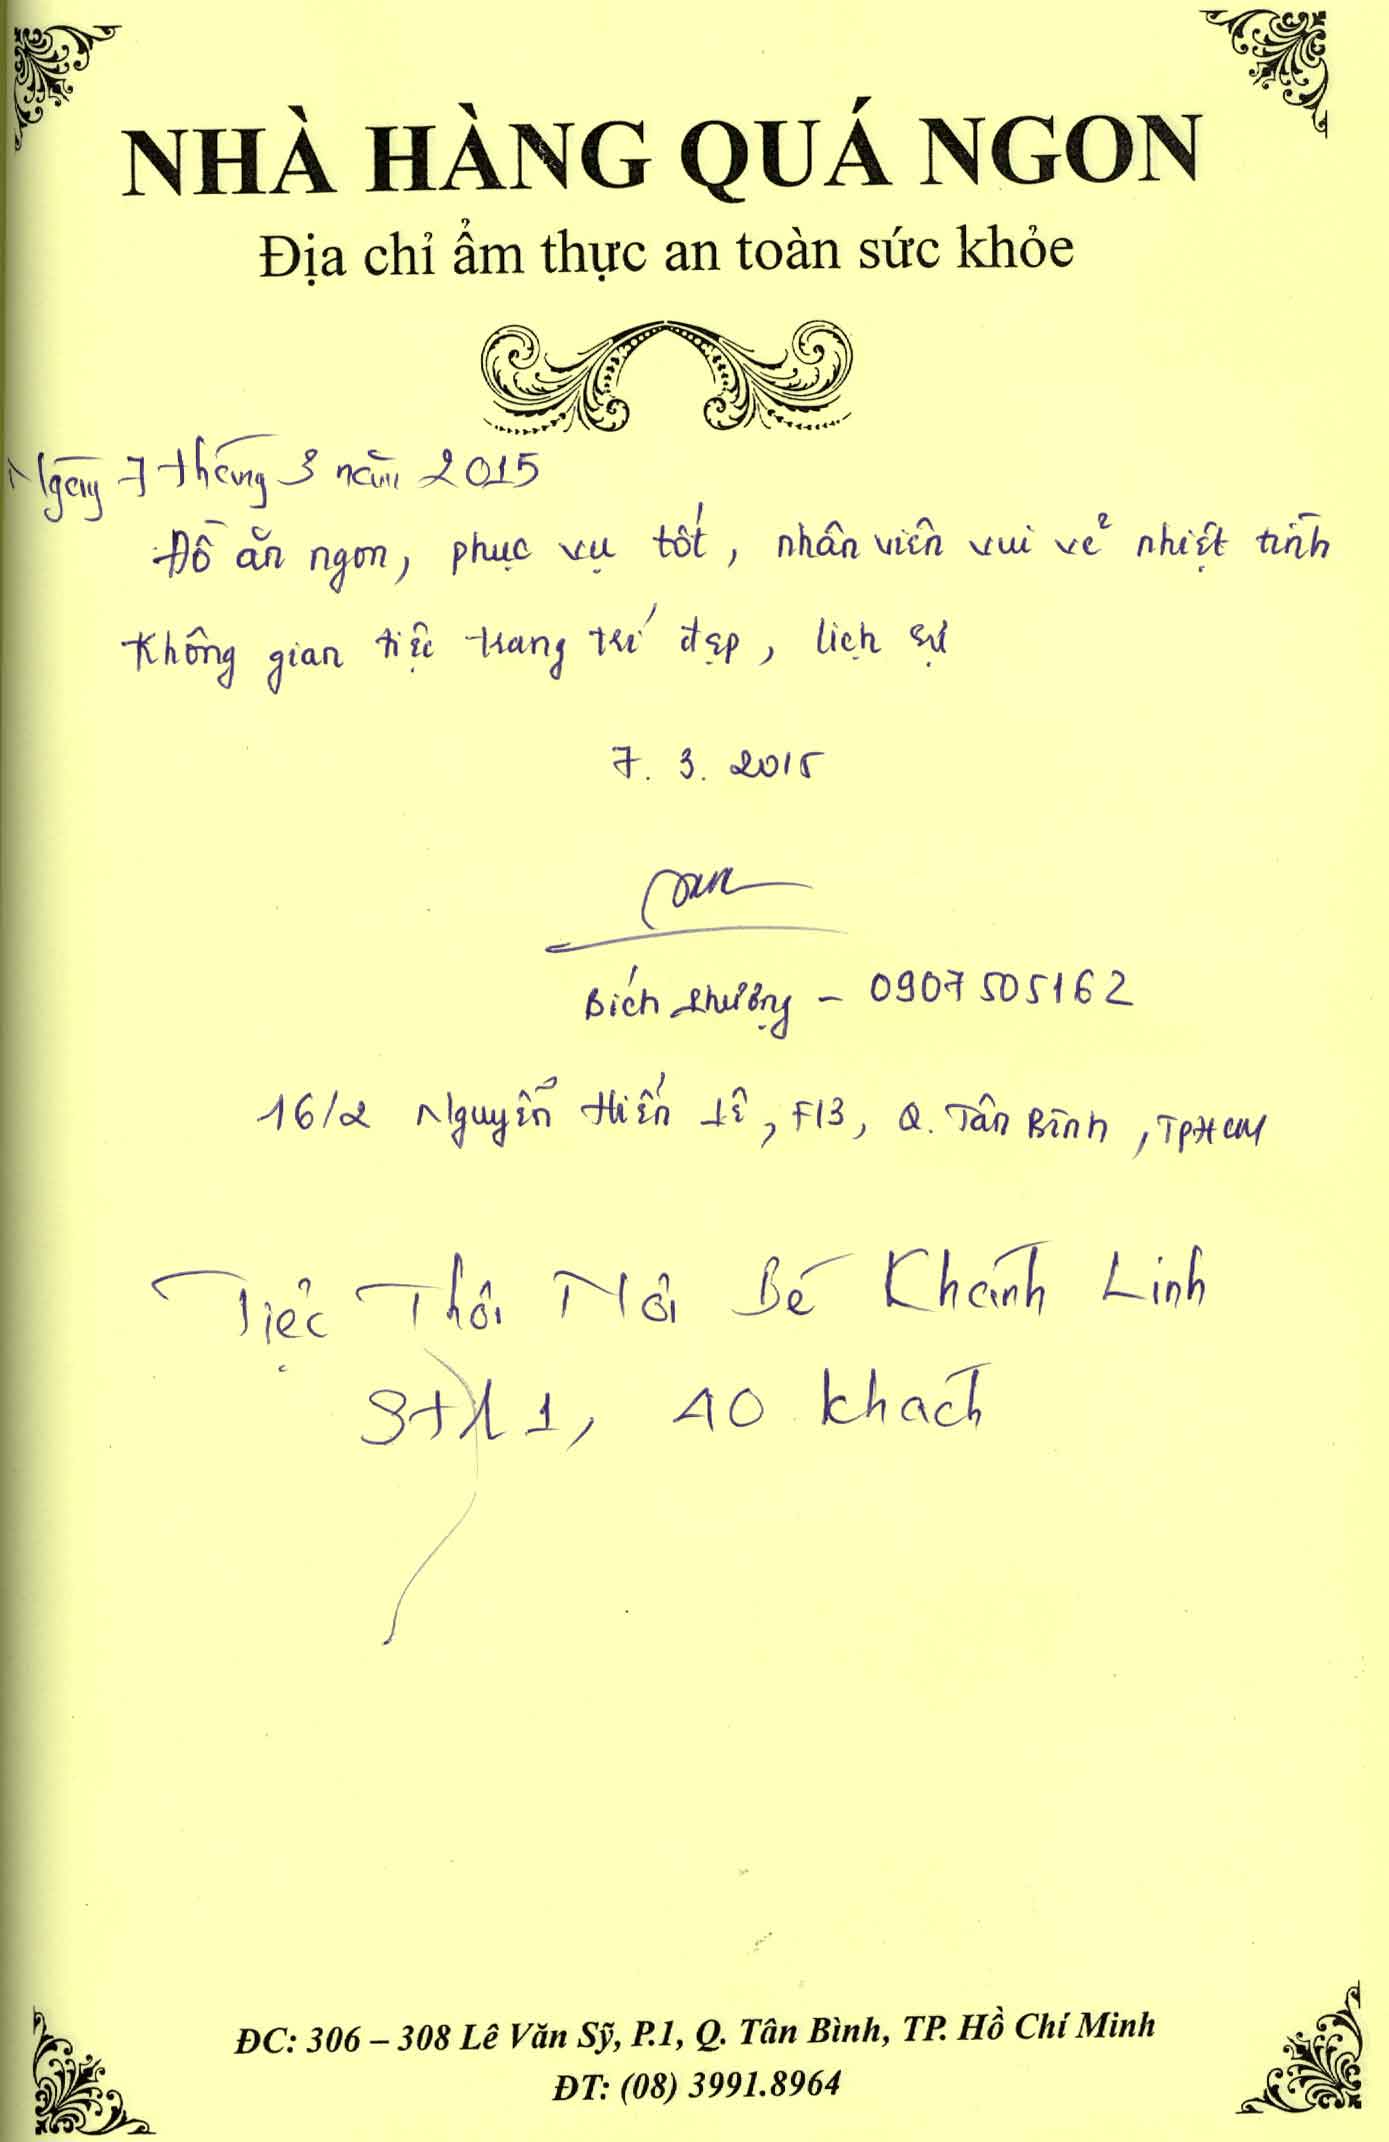 NHÀ HÀNG QUÁ NGON
Địa chỉ ẩm thực an toàn sức khỏe
Ngày 7 tháng 3 năm 2015
Đồ ăn ngon, phục vụ tốt, nhân viên vui vẻ nhiệt tình
Không gian tiệc trang trí đẹp, lịch sự
7. 3. 2015
Bích - 0907505162
16/2 Nguyễn Hiến Lê, F13, Q. Tân Bình, TPHCM
Tiệc Thôi Nôi Bé Khánh Linh
1, 40 khách
ĐC: 306 – 308 Lê Văn Sỹ, P.1, Q. Tân Bình, TP. Hồ Chí Minh
ĐT: (08) 3991.8964